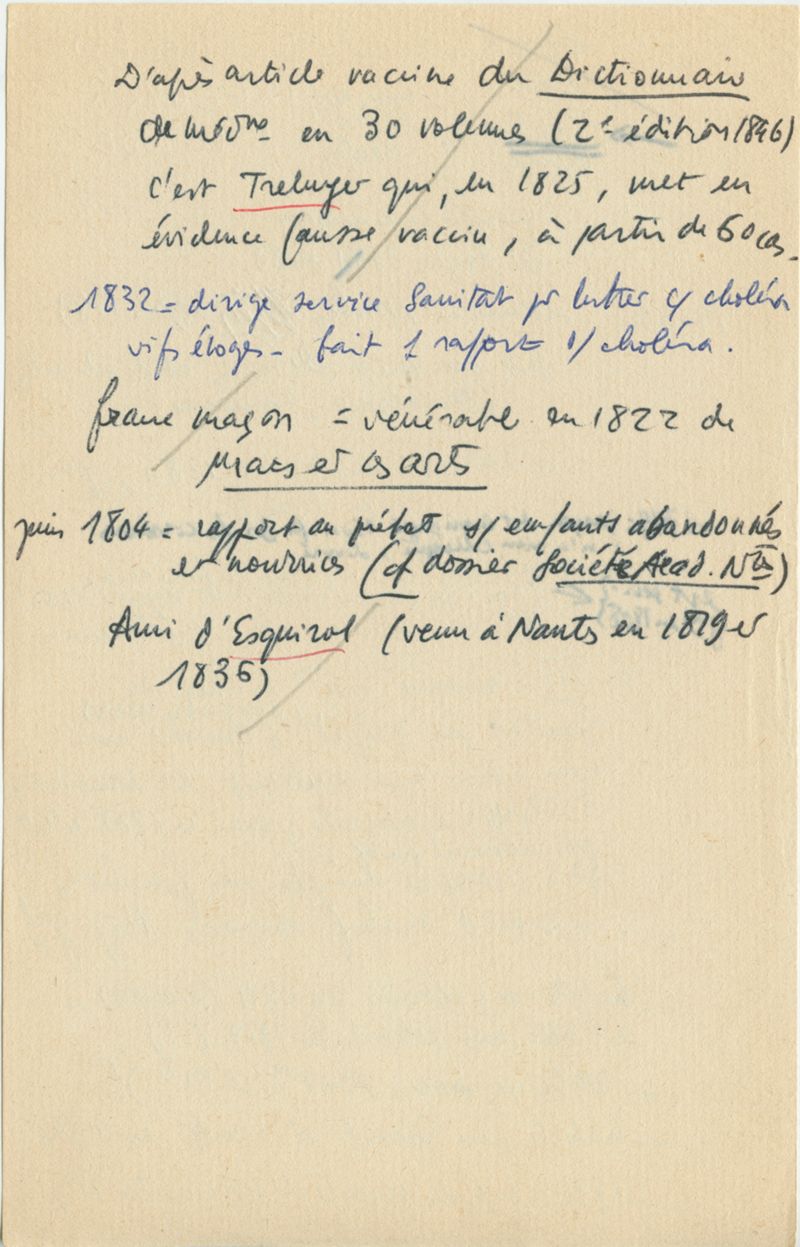 D'après article vaccine du Dictionnaire
de médne en 30 volumes (2e édition 1846)
c'est Treluyer qui, en 1825, met en
évidence fausse vaccin, à partir de 60 cas.
1832 = dirige service Sanitat pr lutter c/ choléra
vifs éloges - fait 1 rapport s/ choléra.
franc maçon = vénérable en 1822 de
Mars et les arts
juin 1804 = rapport au préfet s/ enfants abandonnés
et nourrices (cf dossier Société Acad. Ntes)
Ami d'Esquirol (venu à Nantes en 1819 et
1836)